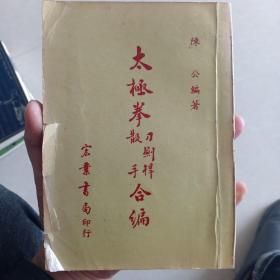 陳公編著
太極拳刀劍桿散手合編
宏業書局印行